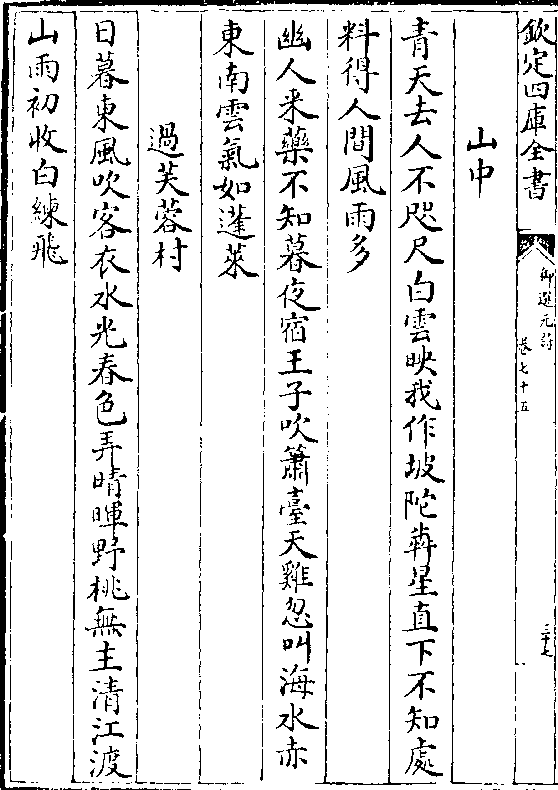 欽定四庫全書
御選元詩
卷七十五
山中
青天去人不咫尺白雲映我作坡陀犇星直下不知處
料得人間風雨多
幽人采藥不知暮夜宿王子吹簫臺天雞忽叫海水赤
東南雲氣如蓬萊
過芙蓉村
日暮東風吹客衣水光春色弄晴暉野桃無主清江渡
山雨初收白練飛